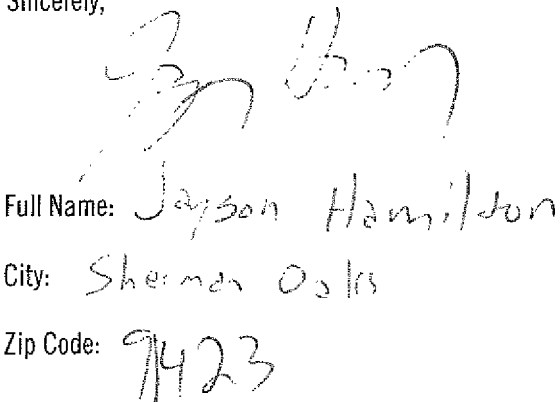 Sincerely,
Full Name: Jayson Hamilton
City: Sherman Oaks
Zip Code: 91423